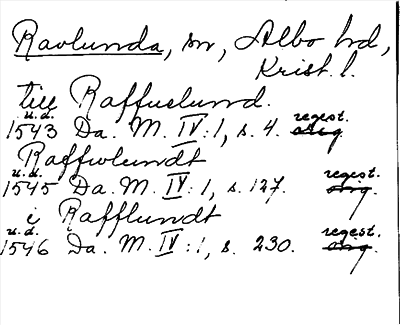 Ravlunda, sn, Albo hd,
Krist. l.
till Raffuelund.
u.d. regest.
1543 Da. M. IV: 1, s. 4. orig
Raffwlundt
u.d. regest.
1545 Da. M. IV: 1, s. 127. orig.
i Rafflundt
u.d. regest.
1546 Da. M. IV: 1, s. 230. orig.